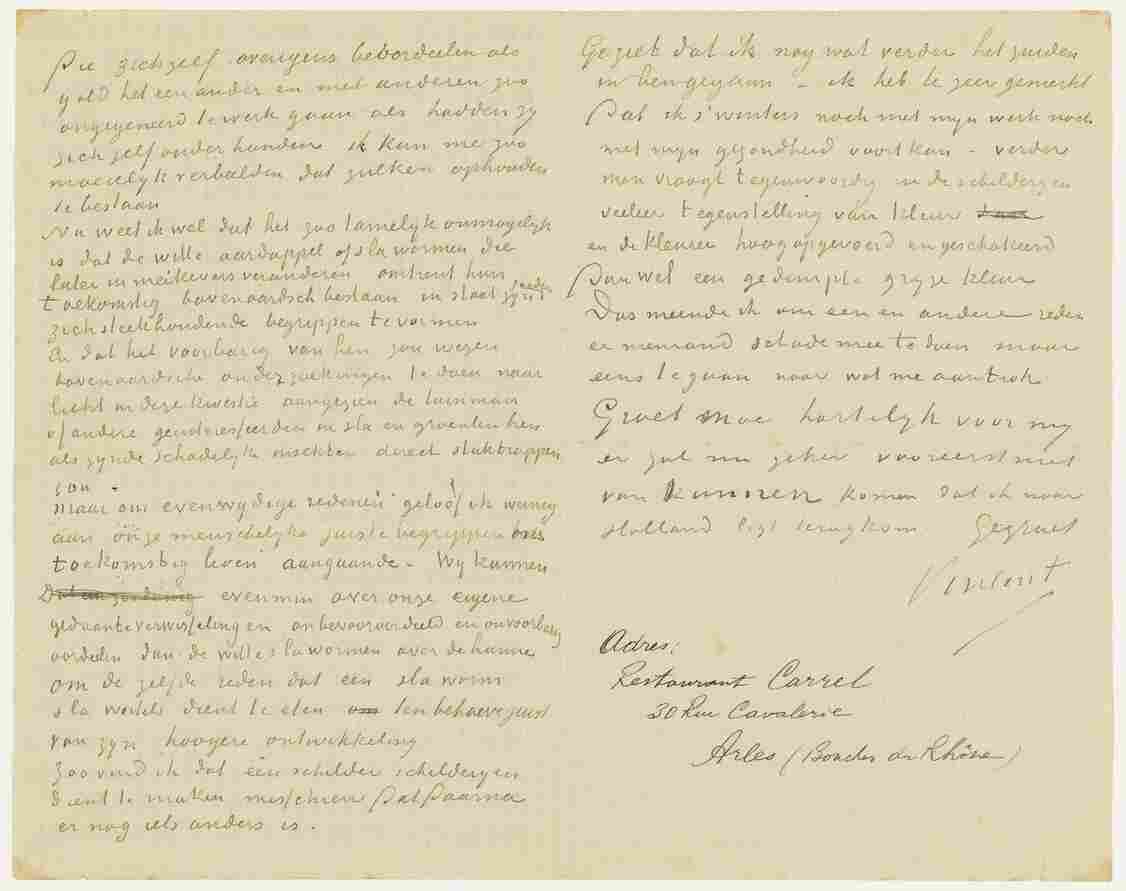 Die zichzelf overigens beoordeelen als
gold het een ander en met anderen zoo
ongegeneerd te werk gaan als hadden zy
zich zelf onder handen ik kan me zoo
moeielyk verbeelden dat zulken ophouden
te bestaan
Nu weet ik wel dat het zoo tamelyk onmogelyk
is dat de witte aardappel of sla wormen die
later in meikevers veranderen omtrent hun
toekomstig bovenaardsch bestaan in staat zyn
zich steekhoudende begrippen te vormen
En dat het voorbarig van hen zou wezen
bovenaardsche onderzoekingen te doen naar
licht in deze kwestie aangezien de tuinman
of andere geinteresseerden in sla en groenten hen
als zynde schadelyke insekten direct stuktrappen
zou.
maar om evenwydige redenen geloof ik weinig
aan onze menschelyke juiste begrippen ons
toekomstig leven aangaande. Wy kunnen
evenmin over onze eigene
gedaanteverwisselingen onbevooroordeeld en onvoorbarig
oordeelen dan de witte slawormen over de hunne
om de zelfde reden dat een sla worm
sla wortels dient te eten ten behoeve juist
van zyn hoogere ontwikkeling
zoo vind ik dat een schilder schilderyen
dient te maken misschien dat daarna
er nog iets anders is.
Ge ziet dat ik nog wat verder het zuiden
in ben gegaan – ik heb te zeer gemerkt
dat ik s'winters noch met myn werk noch
met myn gezondheid voort kan – verder
men vraagt tegenwoordig in de schilderyen
veeleer tegenstelling van kleur
en de kleuren hoog opgevoerd en geschakeerd
dan wel een gedempte gryze kleur
Dus meende ik om een en andere reden
er niemand schade mee te doen maar
eens te gaan naar wat me aantrok
Groet Moe hartelyk voor my
er zal nu zeker vooreerst niet
van kunnen komen dat ik naar
Holland eens terugkom Gegroet
Vincent
Adres:
Restaurant Carrel
30 Rue Cavalerie
Arles (Bouches du Rhône)